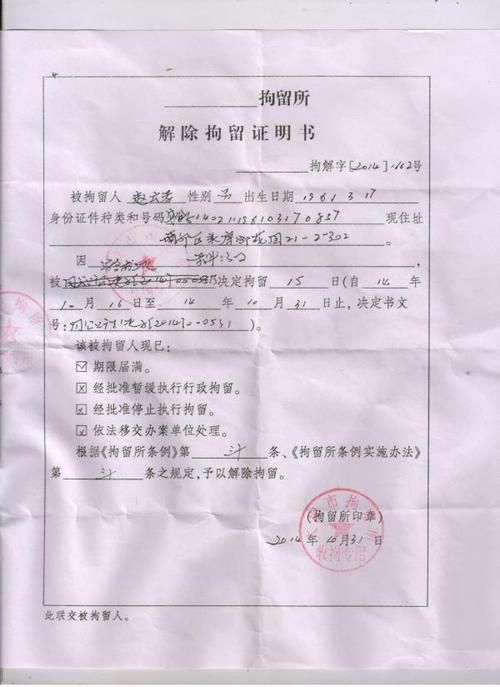 拘留所
解除拘留证明书
拘解字[2014]162号
被拘留人 性别 男 出生日期 1961 3 17
身份证件种类和号码 140211196103170837 现住址
21-2-302
因
被 决定拘留 15 日(自 14 年
10 月 16 日至 14 年 10 月 31 日止,决定书文
号: [2014]0-0531 )。
该被拘留人现已:
期限届满。
经批准暂缓执行行政拘留。
经批准停止执行拘留。
依法移交办案单位处理。
根据《拘留所条例》第 条、《拘留所条例实施办法》
第 条之规定,予以解除拘留。
(拘留所印章)
2014 年 10 月 31 日
收拘专用
此联交被拘留人。